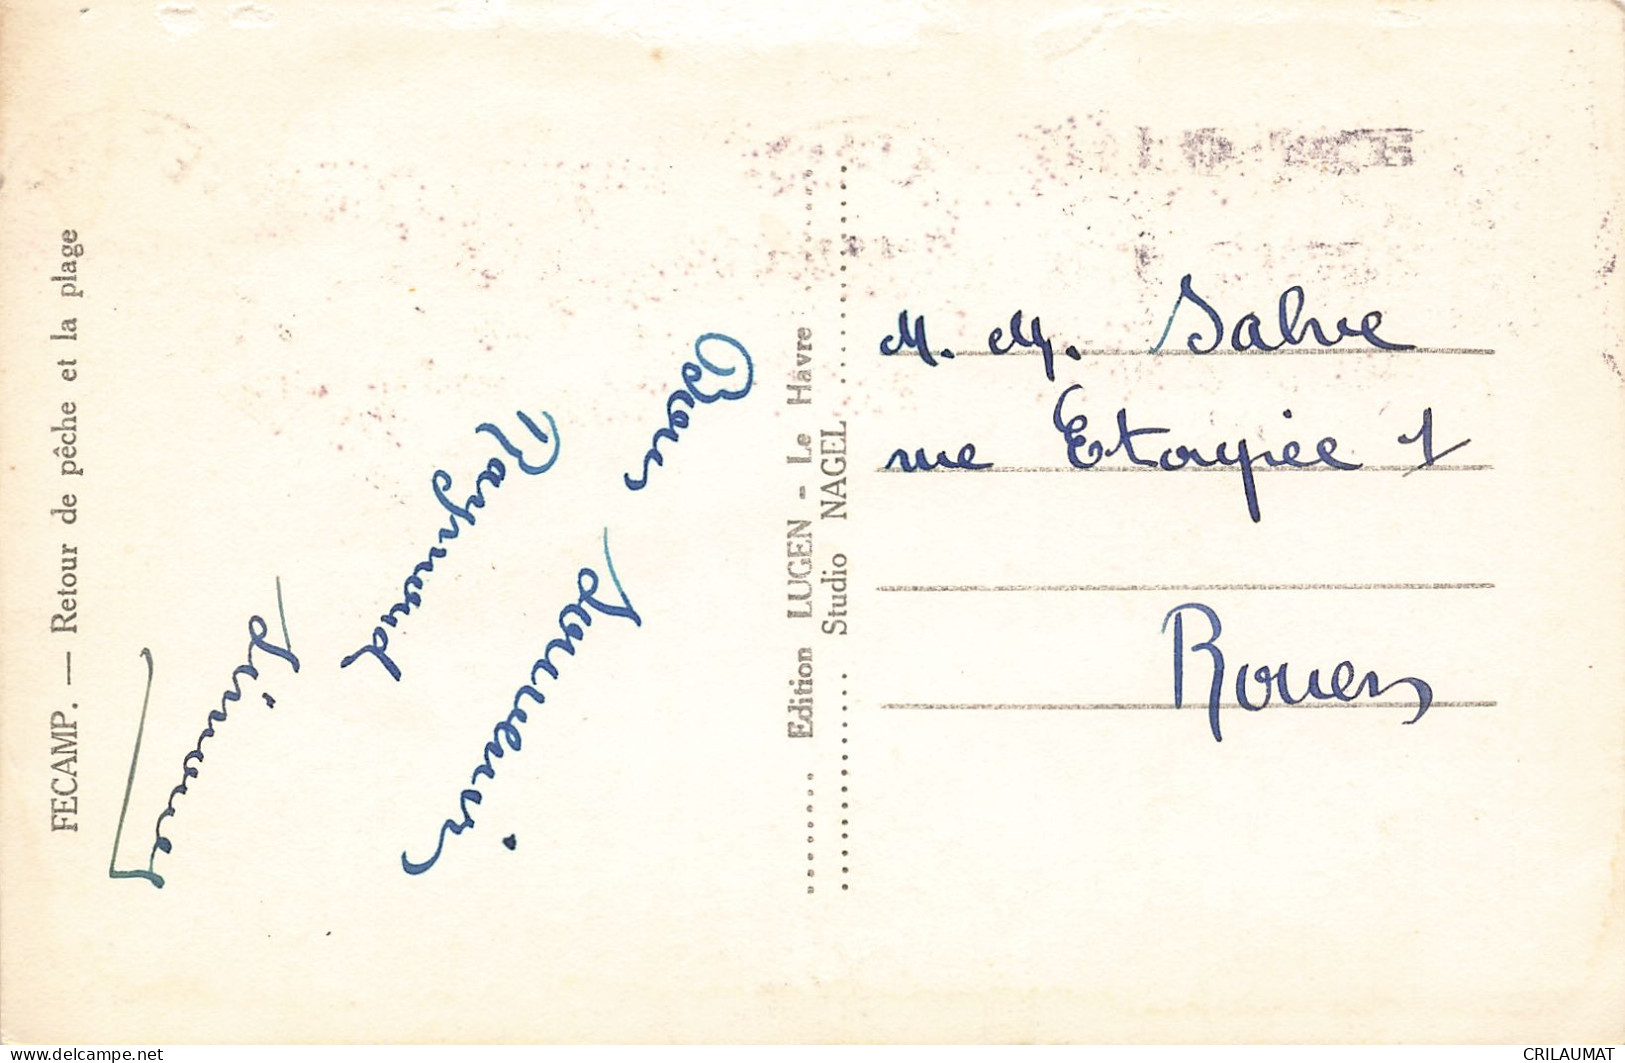 FECAMP. — Retour de pêche et la plage
Bon Souvenir
Raymond
Simone
Edition LUGEN - Le Havre
Studio NAGEL
M. M. Salve
rue Etoupée 1
Rouen
www.delcampe.net
CRILAUMAT